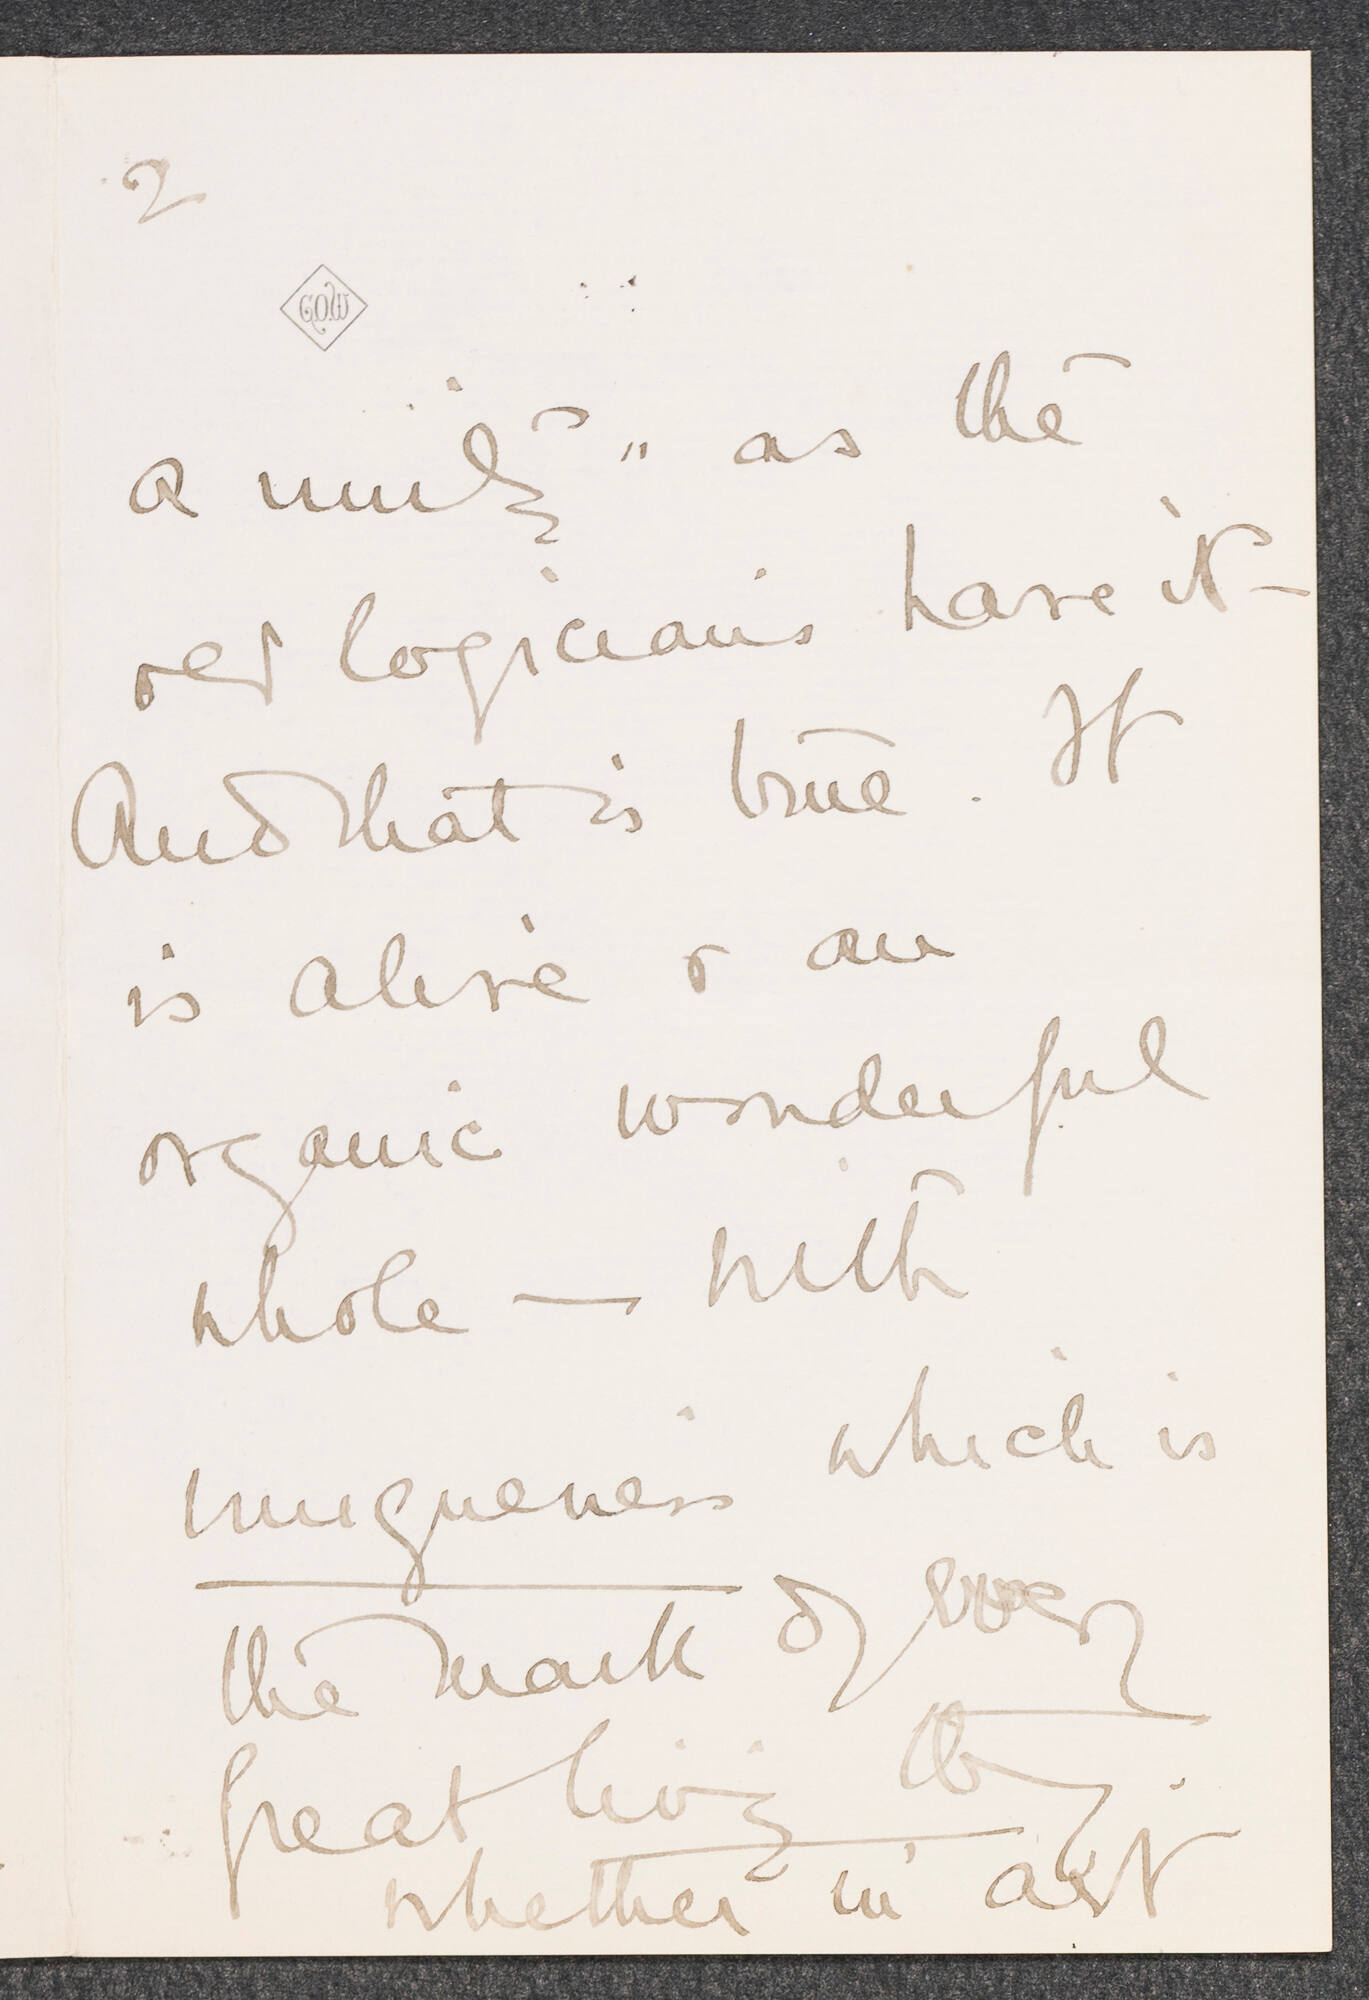 2
G.O.W
a unity" as the
logicians have it -
And that is true. It
is alive & an
organic wonderful
whole — with
uniqueness which is
the mark of every
great living thing.
whether in art